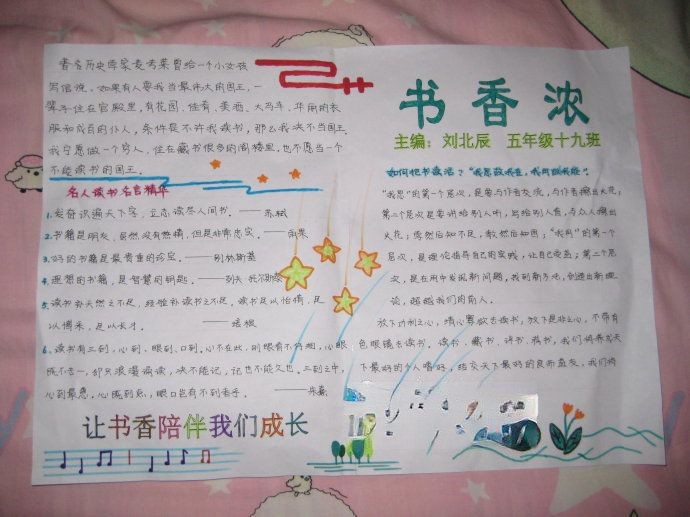 著名历史学家麦考莱曾给一个小女孩
写信说，如果有人要我当最伟大的国王，一
辈子住在宫殿里，有花园、佳肴、美酒、大马车、华丽的衣
服和成百的仆人，条件是不许我读书，那么我决不当国王，
我宁愿做一个穷人，住在藏书很多的阁楼里，也不愿当一个
不能读书的国王。
名人读书名言精华
1、发奋识遍天下字，立志读尽人间书。——苏轼
2、书籍是朋友，虽然没有热情，但是非常忠实。——雨果
3、好的书籍是最贵重的珍宝。——别林斯基
4、理想的书籍，是智慧的钥匙。——列夫·托尔斯泰
5、读书补天然之不足，经验补读书之不足。读书足以怡情，足
以博采，足以长才。——培根
6、读书有三到，心到、眼到、口到。心不在此，则眼看不仔细，心眼
既不专一，却只浪漫诵读，决不能记，记也不能久也。三到之中，
心到最急，心既到矣，眼口岂有不到者乎。——朱熹
让书香陪伴我们成长
书香浓
主编：刘北辰 五年级十九班
如何把书读活？“我思故我在，我用故我能”。
“我思”的第一个层次，是要与作者交流，与作者擦出火花；
第二个层次是要讲给别人听，写给别人看，与众人擦出
火花；学然后知不足，教然后知困；“我用”的第一个
层次，是理论指导自己的实践，让自己受益；第二个层
次，是在用中发现新问题，找到新方法，创造出新理
论，超越我们的前人。
放下功利之心，清心寡欲去读书，放下是非之心，不带有
色眼镜去读书。读书、藏书、评书、荐书，我们将养成天
下最好的个人嗜好，结交天下最好的良师益友，我们将